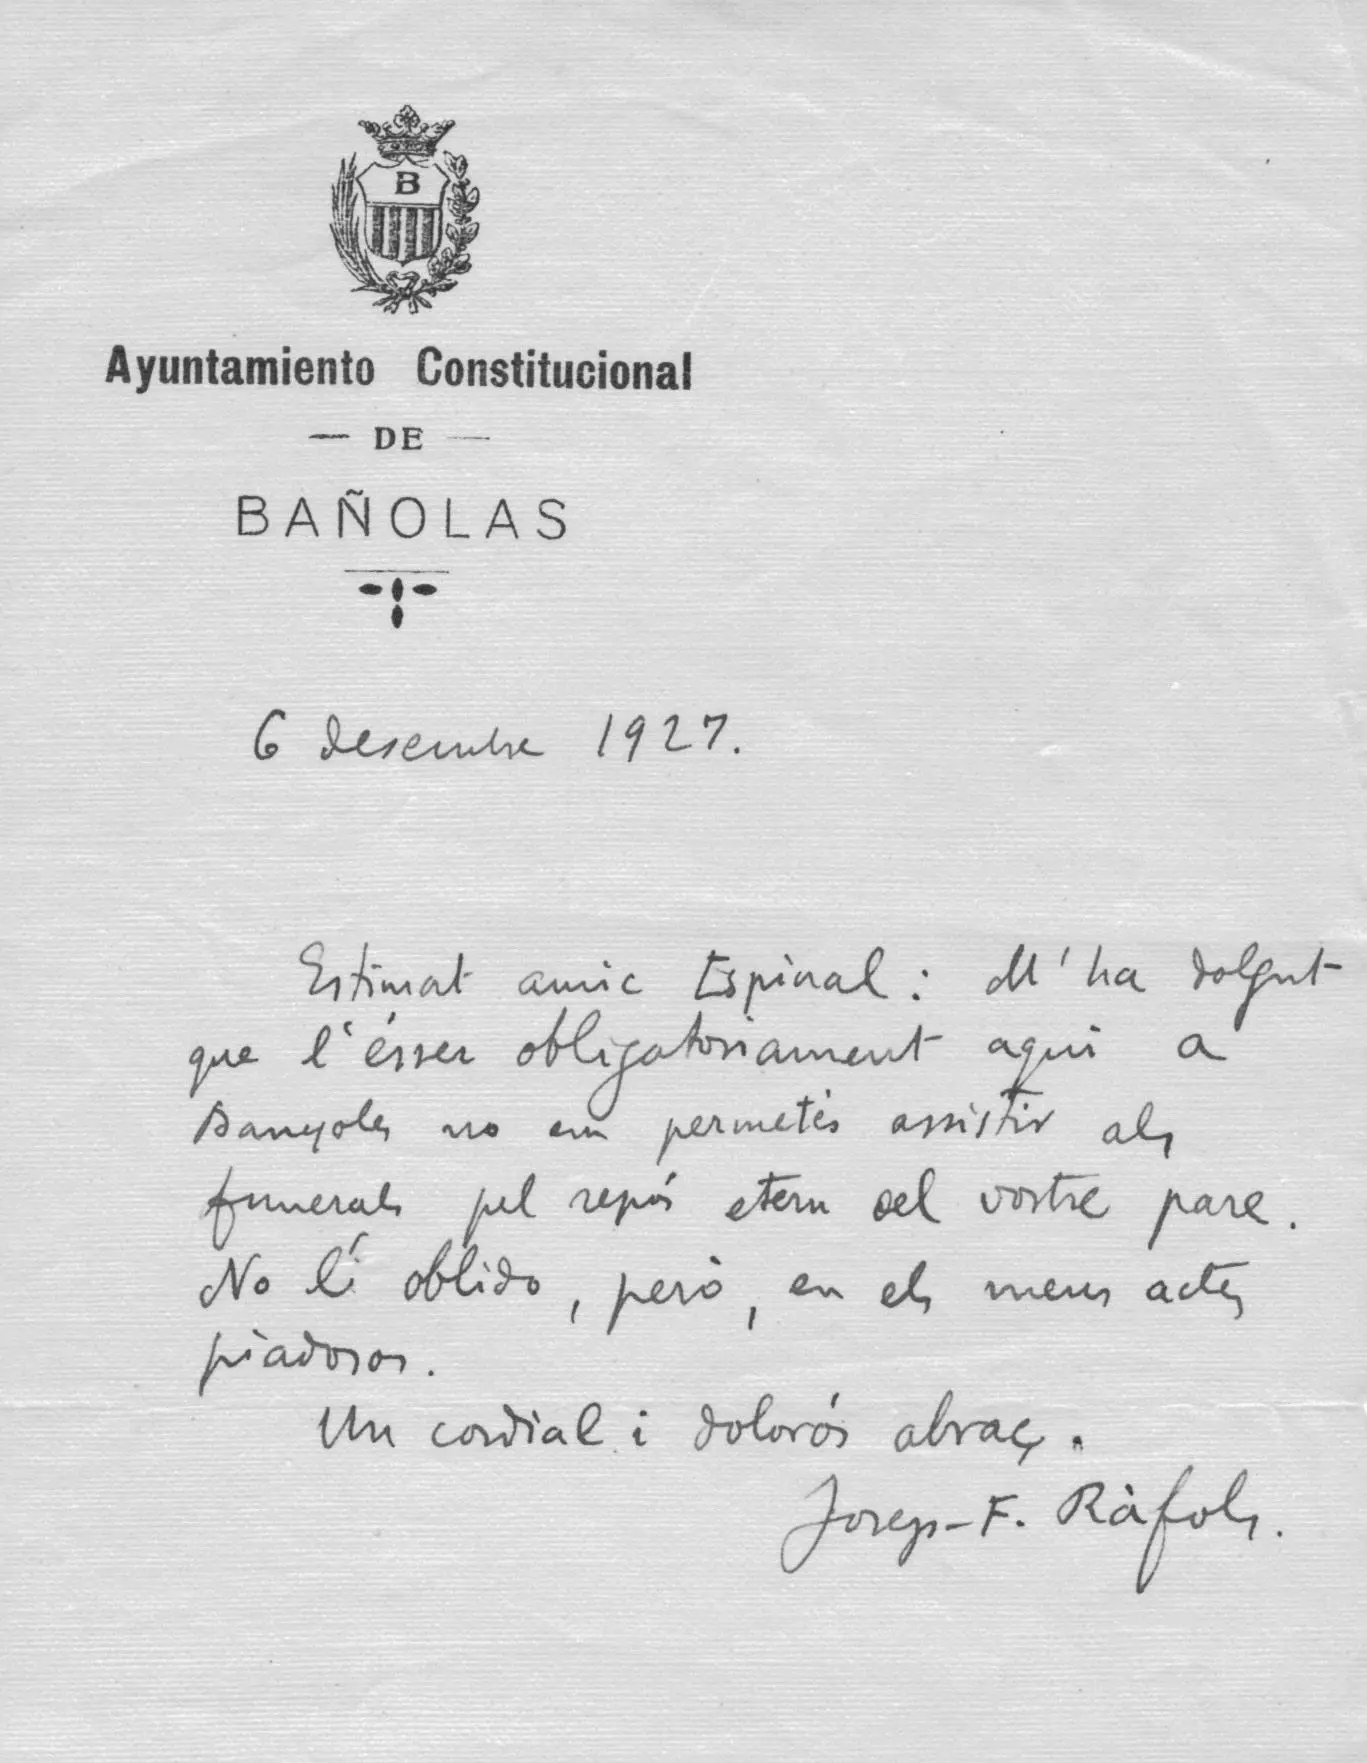 B
Ayuntamiento Constitucional
— DE —
BAÑOLAS
6 desembre 1927.
Estimat amic Espinal: M'ha dolgut
que l'ésser obligatoriament aquí a
Banyoles no em permetés assistir als
funerals pel repós etern del vostre pare.
No l'oblido, però, en els meus actes
piadosos.
Un cordial i dolorós abraç.
Josep-F. Ràfols.